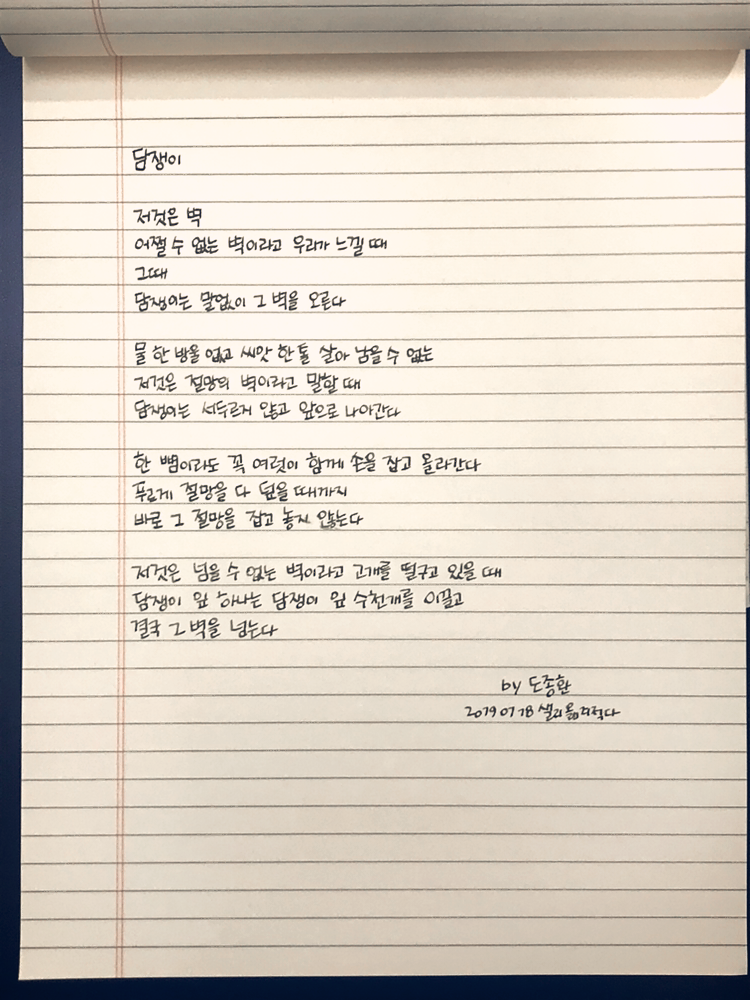 담쟁이
저것은 벽
어쩔 수 없는 벽이라고 우리가 느낄 때
그때
담쟁이는 말없이 그 벽을 오른다
물 한 방울 없고 씨앗 한 톨 살아 남을 수 없는
저것은 절망의 벽이라고 말할 때
담쟁이는 서두르지 않고 앞으로 나아간다
한 뼘이라도 꼭 여럿이 함께 손을 잡고 올라간다
푸르게 절망을 다 덮을 때까지
바로 그 절망을 잡고 놓지 않는다
저것은 넘을 수 없는 벽이라고 고개를 떨구고 있을 때
담쟁이 잎 하나는 담쟁이 잎 수천개를 이끌고
결국 그 벽을 넘는다
by 도종환
2019 07 18 샐리 옮겨적다